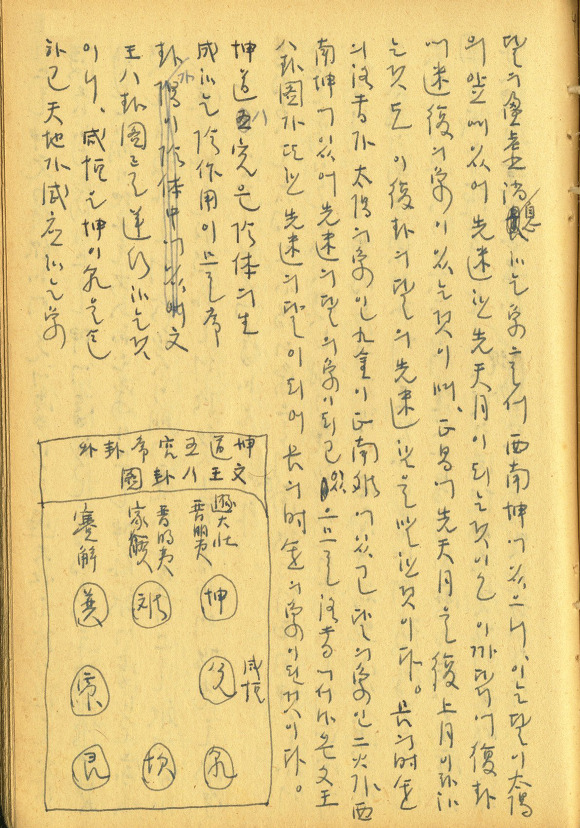 달의 盈虛 消息하는 象으로서 西南坤에 있으니, 이는 달이 太陽
의 앞에 있어 先迷한 先天月이 되는 것이오 이 까닭에 復卦
에 迷復의 象이 있는 것이며, 正易에 先天月을 復上月이라 하
는 것도 이 復卦의 달의 先迷함을 말한 것이다。 艮의 時運
의 洛書가 太陽의 象인 九金이 正南 에 있고 달의 象인 二火가 西
南坤에 있어 先迷의 달의 象이 되고 으므로 洛書에서 나온 文王
八卦圖가 또한 先迷의 달이 되어 艮의 時運의 象이 된 것이다。
坤道 五八 宮은 陰体의 生
成하는 陰作用이므로 序
卦가 文
王八卦圖로 逆行하는 것
이니, 咸恒은 坤이 乾을
하고 天地가 咸應하는 象
坤道五宮序卦와
文王八卦圖
遯大壯
晋明夷
晋明夷
家人睽
蹇解
坤
離
巽
咸恒
兌
震
乾
坎
艮